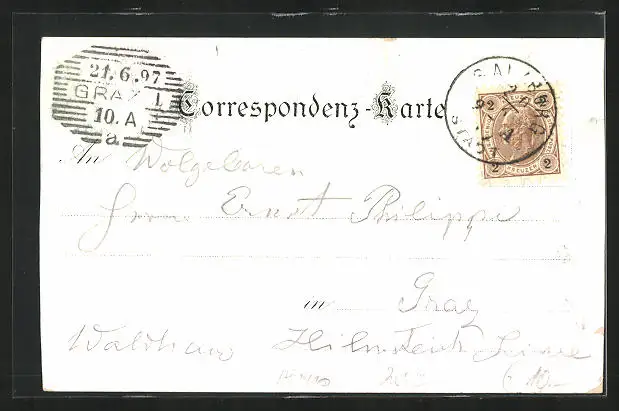 21.6.97
GRAZ 1
10.A
a
Correspondenz-Karte
SALZBURG
STADT
2 2
KREUZER
2 2
An Wolgeboren
Herrn Ernst Philippi
in Graz
Waldhaus Hilmteich